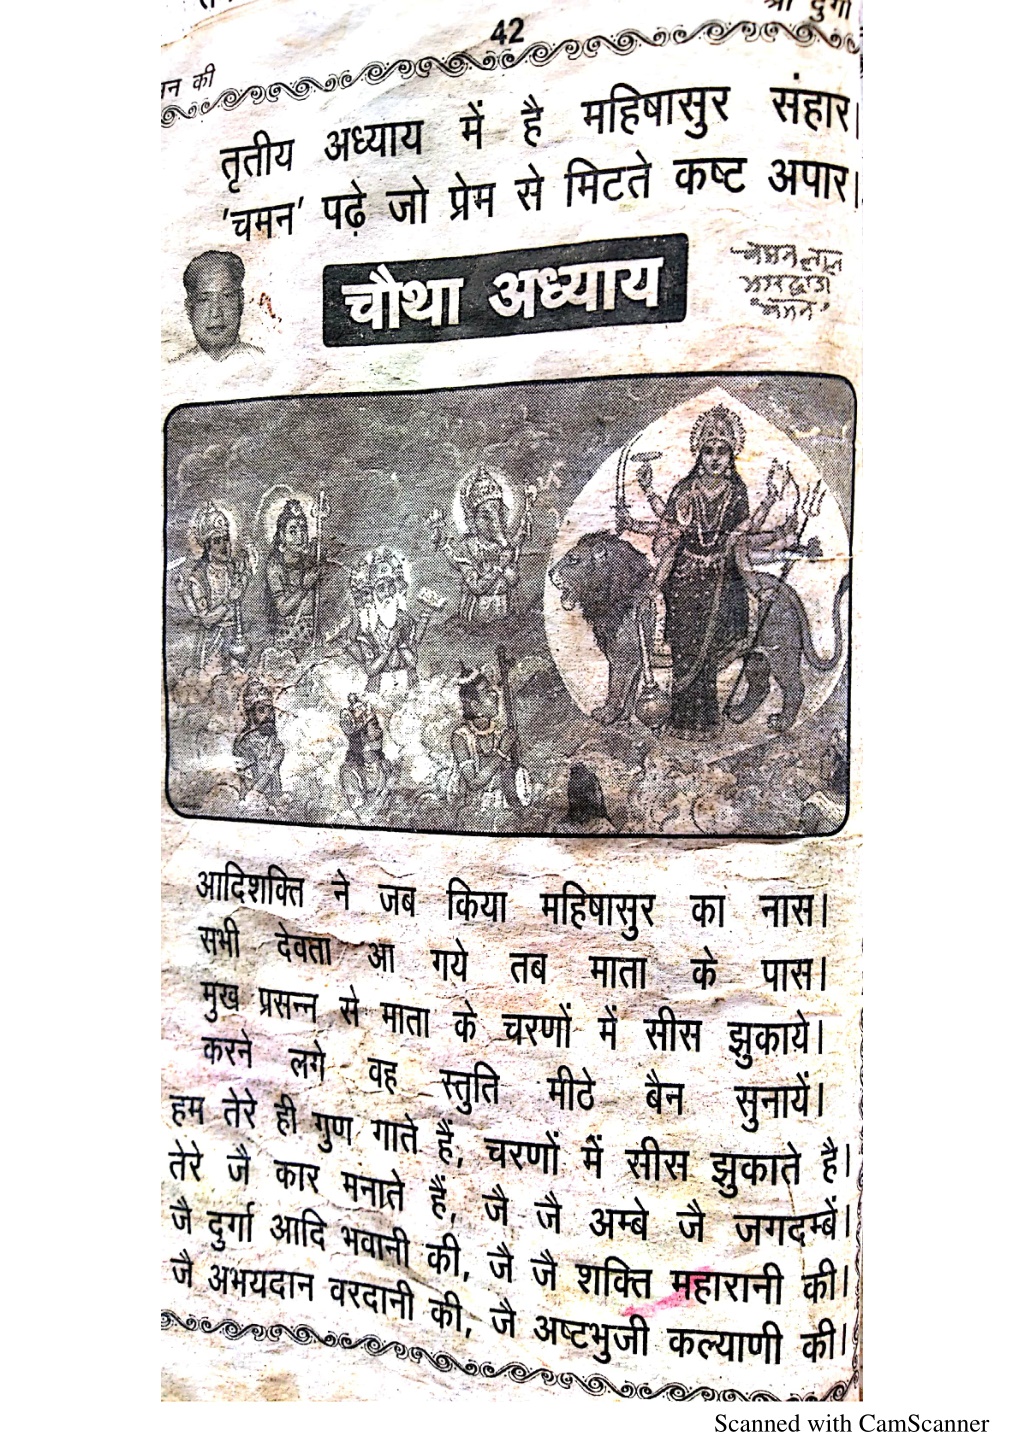 42
की
तृतीय अध्याय में है महिषासुर संहार।
'चमन' पढ़े जो प्रेम से मिटते कष्ट अपार।
चौथा अध्याय
आदिशक्ति ने जब किया महिषासुर का नास।
सभी देवता आ गये तब माता के पास।
मुख प्रसन्न से माता के चरणों में सीस झुकाये।
करने लगे वह स्तुति मीठे बैन सुनायें।
हम तेरे ही गुण गाते हैं, चरणों में सीस झुकाते है।
तेरे जै कार मनाते हैं, जै जै अम्बे जै जगदम्बें।
जै दुर्गा आदि भवानी की, जै जै शक्ति महारानी की।
जै अभयदान वरदानी की, जै अष्टभुजी कल्याणी की।
Scanned with CamScanner